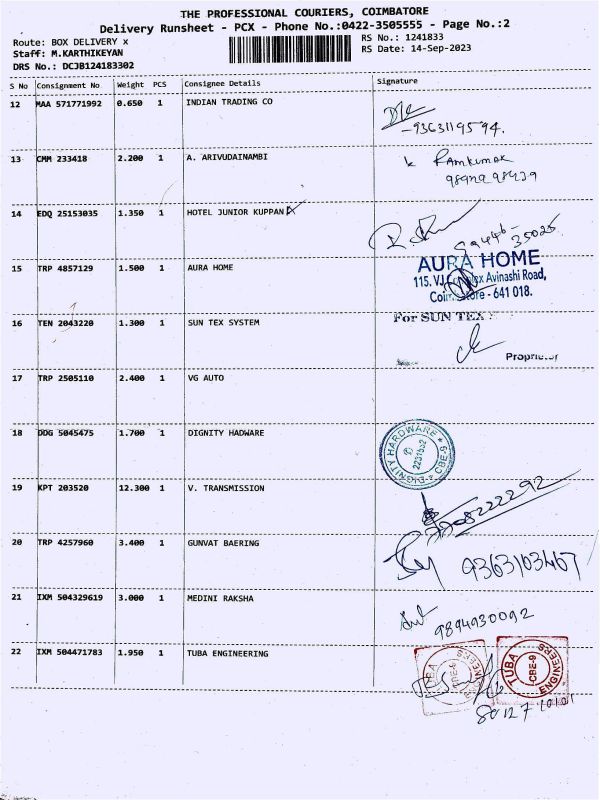 THE PROFESSIONAL COURIERS, COIMBATORE
Delivery Runsheet - PCX - Phone No.:0422-3505555 - Page No.:2
Route: BOX DELIVERY x
RS No.: 1241833
Staff: M.KARTHIKEYAN
RS Date: 14-Sep-2023
DRS No.: DCJB124183302
S No Consignment No Weight PCS Consignee Details Signature
12 MAA 571771992 0.650 1 INDIAN TRADING CO
-9363119594.
13 CMM 233418 2.200 1 A. ARIVUDAINAMBI
Ramkumar
14 EDQ 25153035 1.350 1 HOTEL JUNIOR KUPPANA
35025
15 TRP 4857129 1.500 1 AURA HOME
AURA HOME
115. VJ Complex Avinashi Road,
Coimbatore - 641 018.
16 TEN 2043220 1.300 1 SUN TEX SYSTEM
For SUN TEX
Proprietor
17 TRP 2505110 2.400 1 VG AUTO
18 DDG 5045475 1.700 1 DIGNITY HADWARE
DIGNITY HARDWARE
CBE-9
19 KPT 203520 12.300 1 V. TRANSMISSION
20 TRP 4257960 3.400 1 GUNVAT BAERING
9363103467
21 IXM 504329619 3.000 1 MEDINI RAKSHA
9894930092
22 IXM 504471783 1.950 1 TUBA ENGINEERING
TUBA ENGINEERS
CBE-9
TUBA ENGINEERS
CBE-9